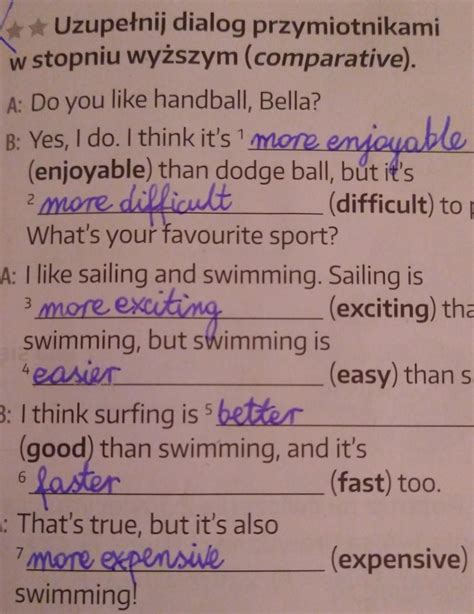 Uzupełnij dialog przymiotnikami
w stopniu wyższym (comparative).
A: Do you like handball, Bella?
B: Yes, I do. I think it's 1 more enjoyable
(enjoyable) than dodge ball, but it's
2 more difficult (difficult) to
What's your favourite sport?
A: I like sailing and swimming. Sailing is
3 more exciting (exciting) tha
swimming, but swimming is
4 easier (easy) than s
B: I think surfing is 5 better
(good) than swimming, and it's
6 faster (fast) too.
: That's true, but it's also
7 more expensive (expensive)
swimming!